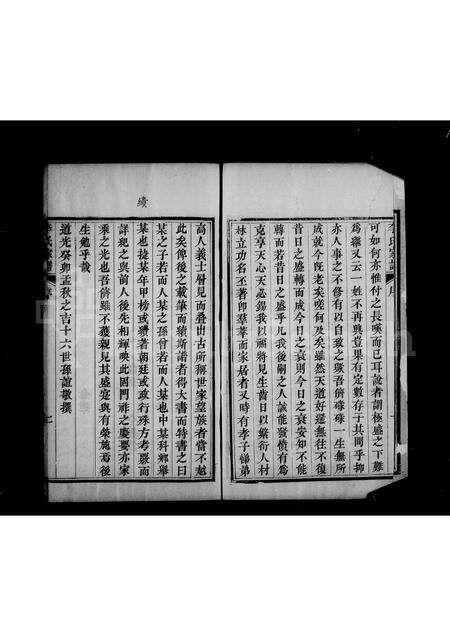 可如何亦惟付之長嘆而已耳說者謂極盛之下難
為繼又云一姓不再興豈果有定數存于其間乎抑
亦人事之不修有以自致之歟吾儕碌碌一生無所
成就今既老矣嗟何及矣雖然天道好還無往不復
昔日之盛轉而成今日之衰則今日之衰安知不能
轉而若昔日之盛乎凡我後嗣之人誠能發憤有為
克享天心天必錫我以福將見生齒日以繁衍人材
林立功名丕著卽羣萃而家居者又時有孝子悌弟
高人義士層見而疊出古所稱世家望族者當不越
此矣俾後之載筆而續斯譜者得大書而特書之曰
某之子若而人某之孫曾若而人某也中某科鄉舉
某也捷某年甲榜或襮著朝廷或政行殊方考覈而
詳記之與前人後先相輝映此固門祚之慶要亦家
乘之光也吾儕雖不獲親見其盛寔與有榮施焉後
生勉乎哉
道光癸卯孟秋之吉十六世孫誼敬撰
李氏家譜
序
續